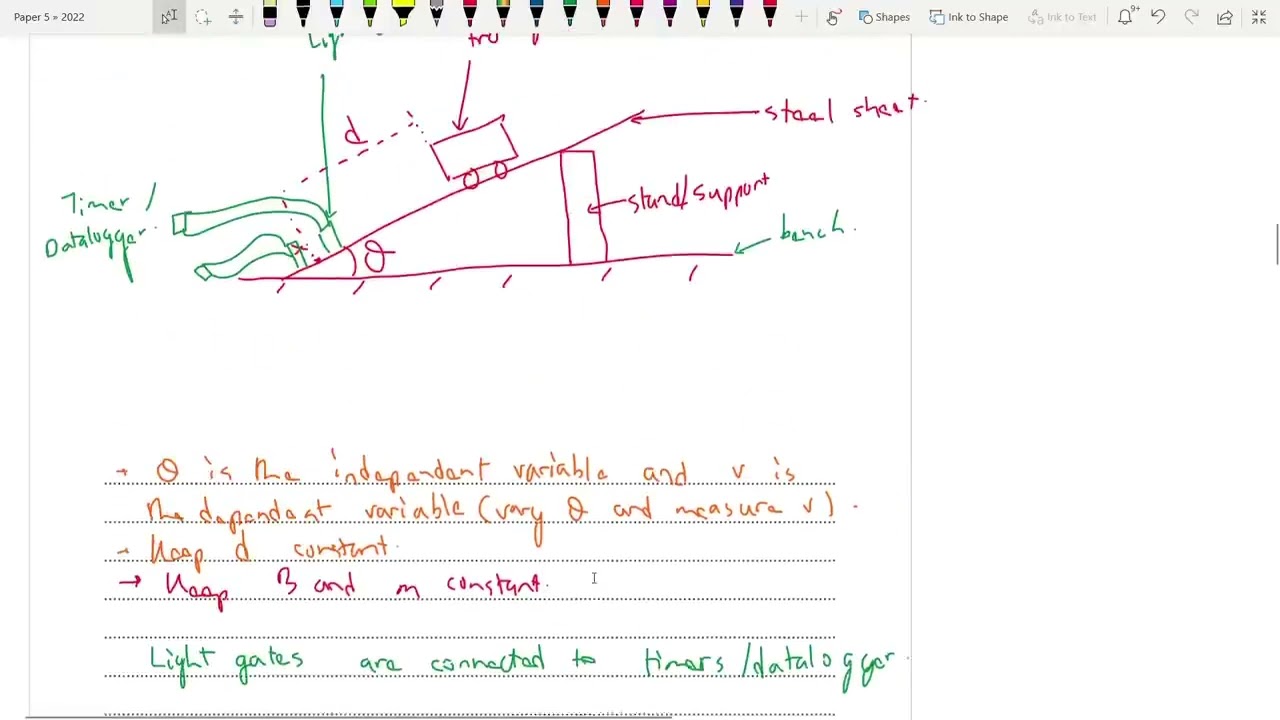 Paper 5 » 2022
Shapes
Ink to Shape
Ink to Text
9+
d
steel sheet.
stand/support
Timer /
Datalogger.
bench.
θ
→ θ is the independent variable and v is
the dependent variable (vary θ and measure v).
→ Keep d constant.
→ Keep B and m constant.
Light gates are connected to timers/datalogger.